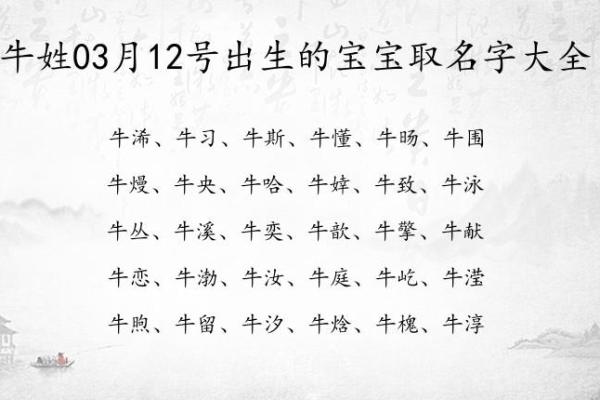 牛姓03月12号出生的宝宝取名字大全
牛浠、牛习、牛斯、牛懂、牛旸、牛围
牛熳、牛央、牛哈、牛婞、牛致、牛泳
牛丛、牛溪、牛奕、牛歆、牛擎、牛献
牛恋、牛渤、牛汝、牛庭、牛屹、牛滢
牛煦、牛留、牛汐、牛焓、牛槐、牛淳